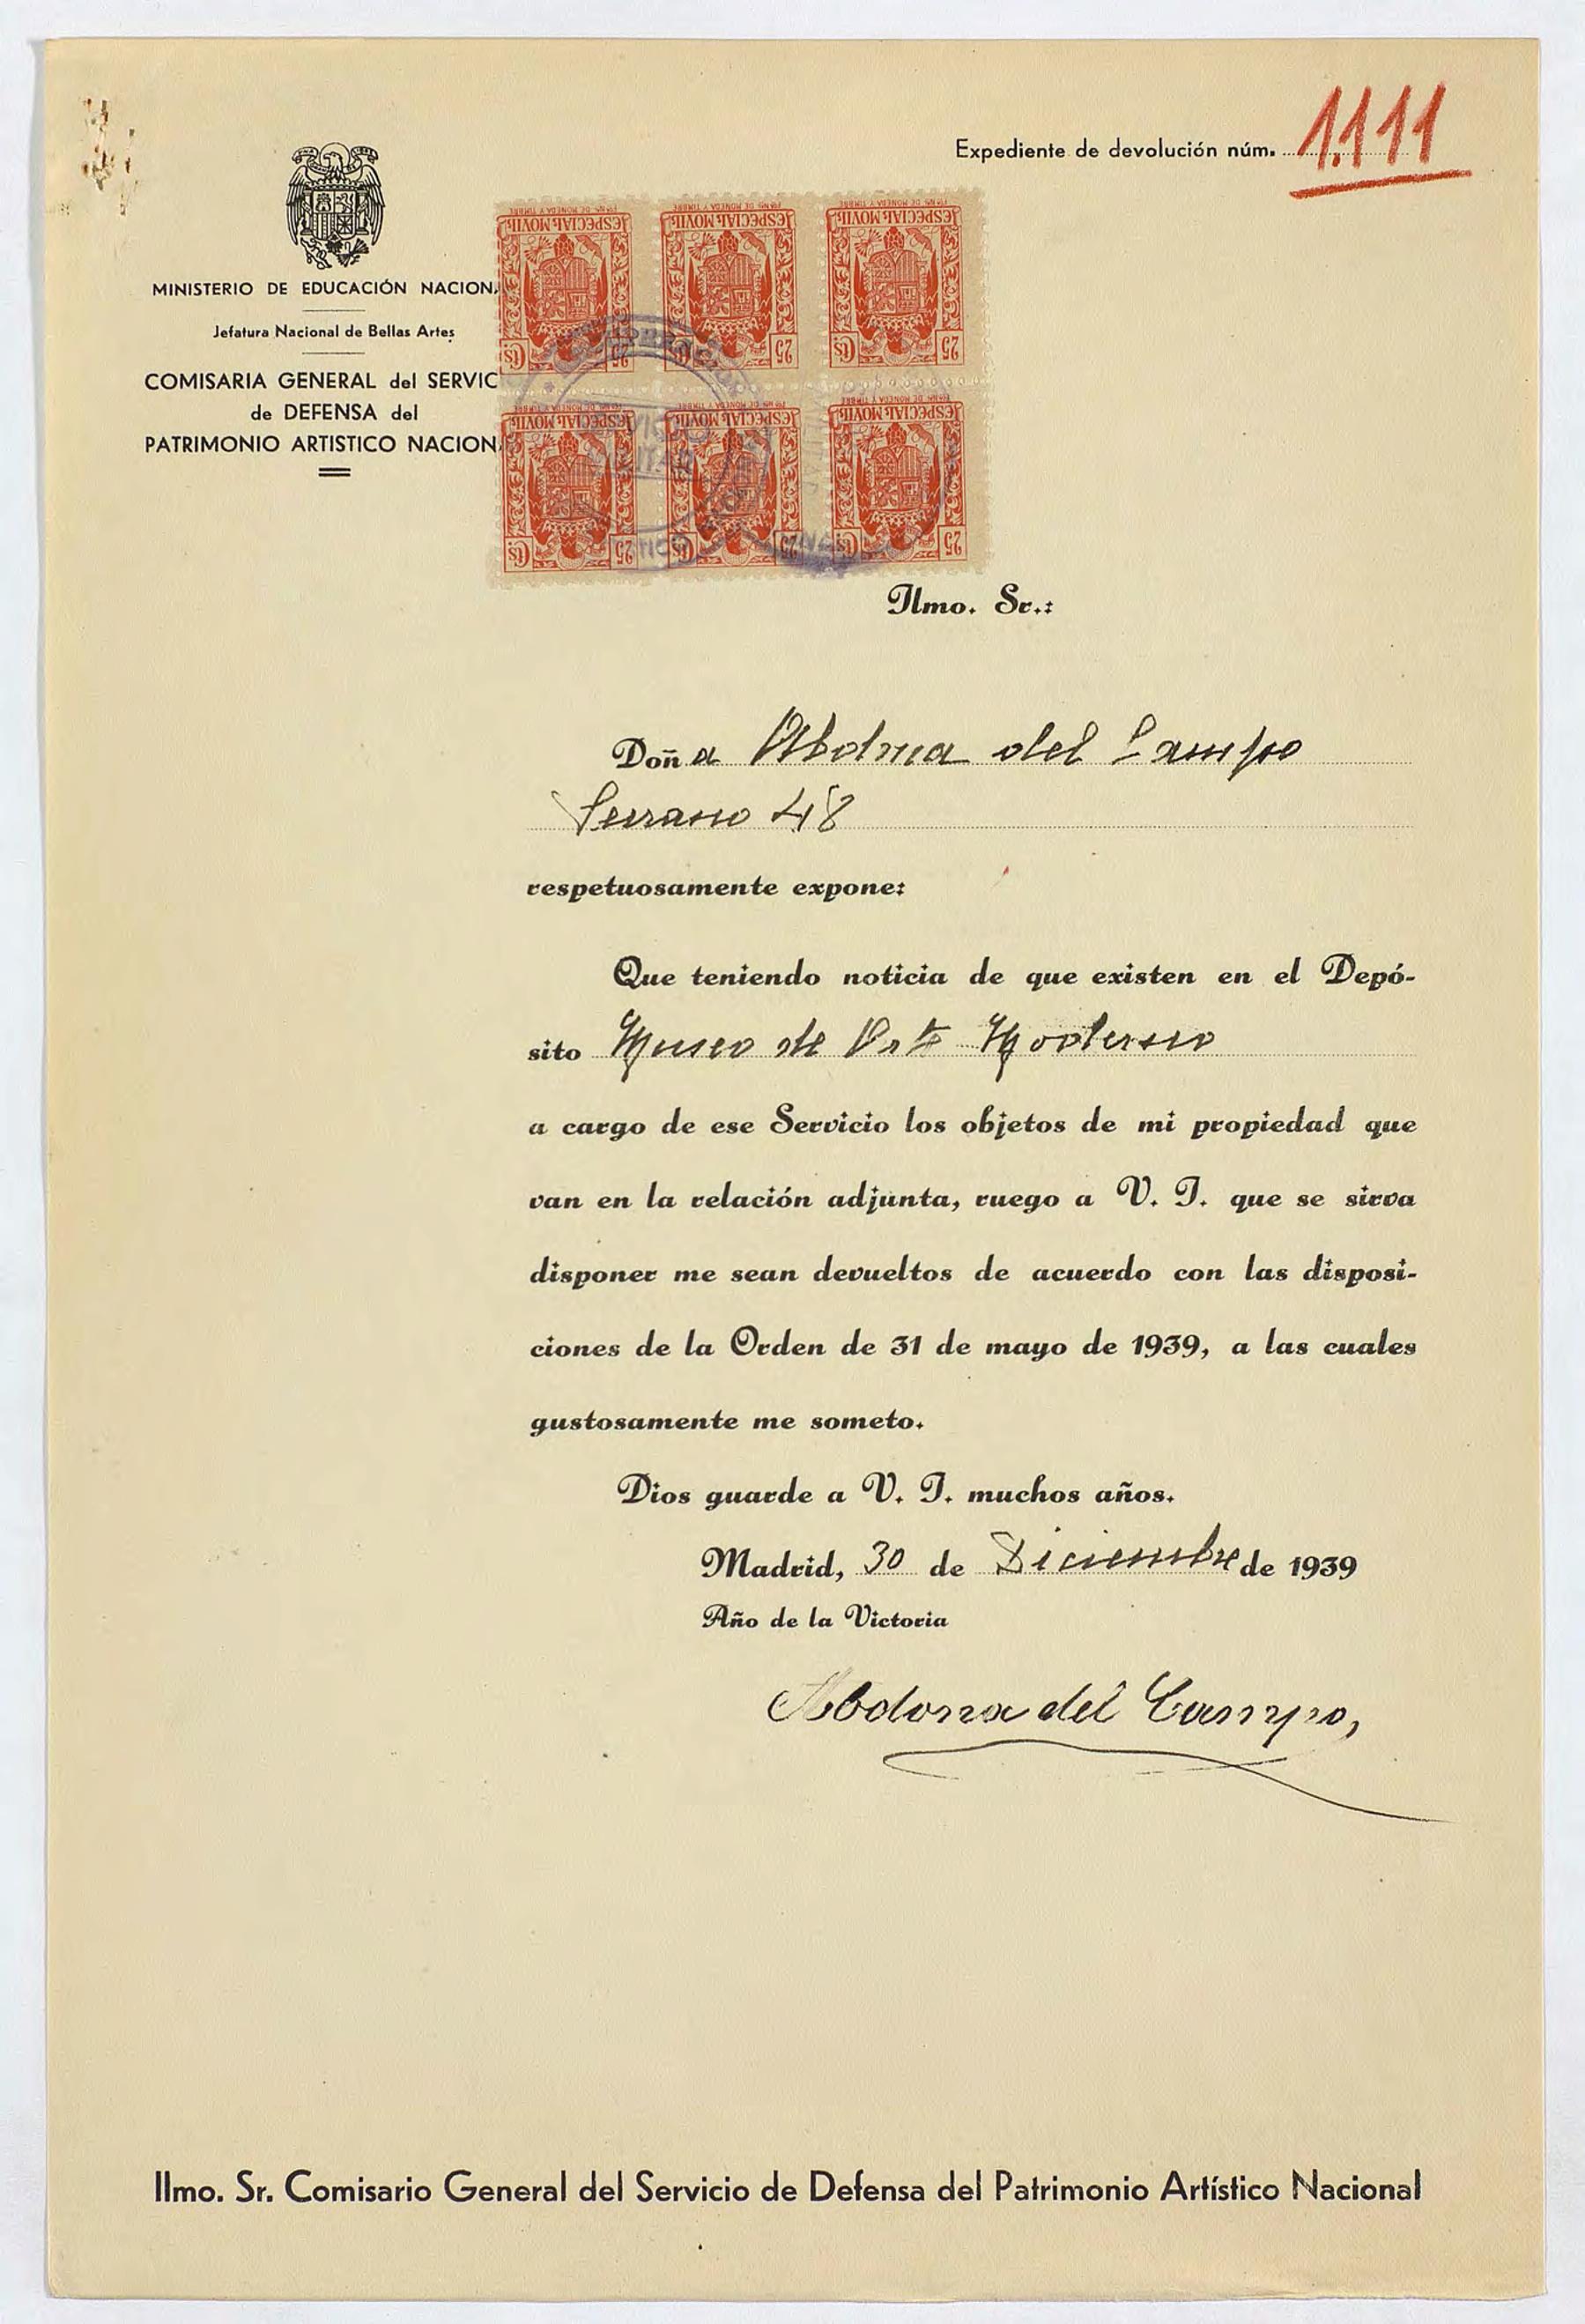 Expediente de devolución núm. 1.111
MINISTERIO DE EDUCACIÓN NACION
Jefatura Nacional de Bellas Artes
COMISARIA GENERAL del SERVIC
de DEFENSA del
PATRIMONIO ARTISTICO NACION
ESPECIAL MOVIL ESPECIAL MOVIL ESPECIAL MOVIL
25 Cts 25 Cts 25 Cts
ESPECIAL MOVIL ESPECIAL MOVIL ESPECIAL MOVIL
25 Cts 25 Cts 25 Cts
Ilmo. Sr.:
Doña Abdona del Campo
Serrano 48
respetuosamente expone:
Que teniendo noticia de que existen en el Depó-
sito Museo de Arte Moderno
a cargo de ese Servicio los objetos de mi propiedad que
van en la relación adjunta, ruego a V. I. que se sirva
disponer me sean devueltos de acuerdo con las disposi-
ciones de la Orden de 31 de mayo de 1939, a las cuales
gustosamente me someto.
Dios guarde a V. I. muchos años.
Madrid, 30 de Diciembre de 1939
Año de la Victoria
Abdona del Campo,
Ilmo. Sr. Comisario General del Servicio de Defensa del Patrimonio Artístico Nacional